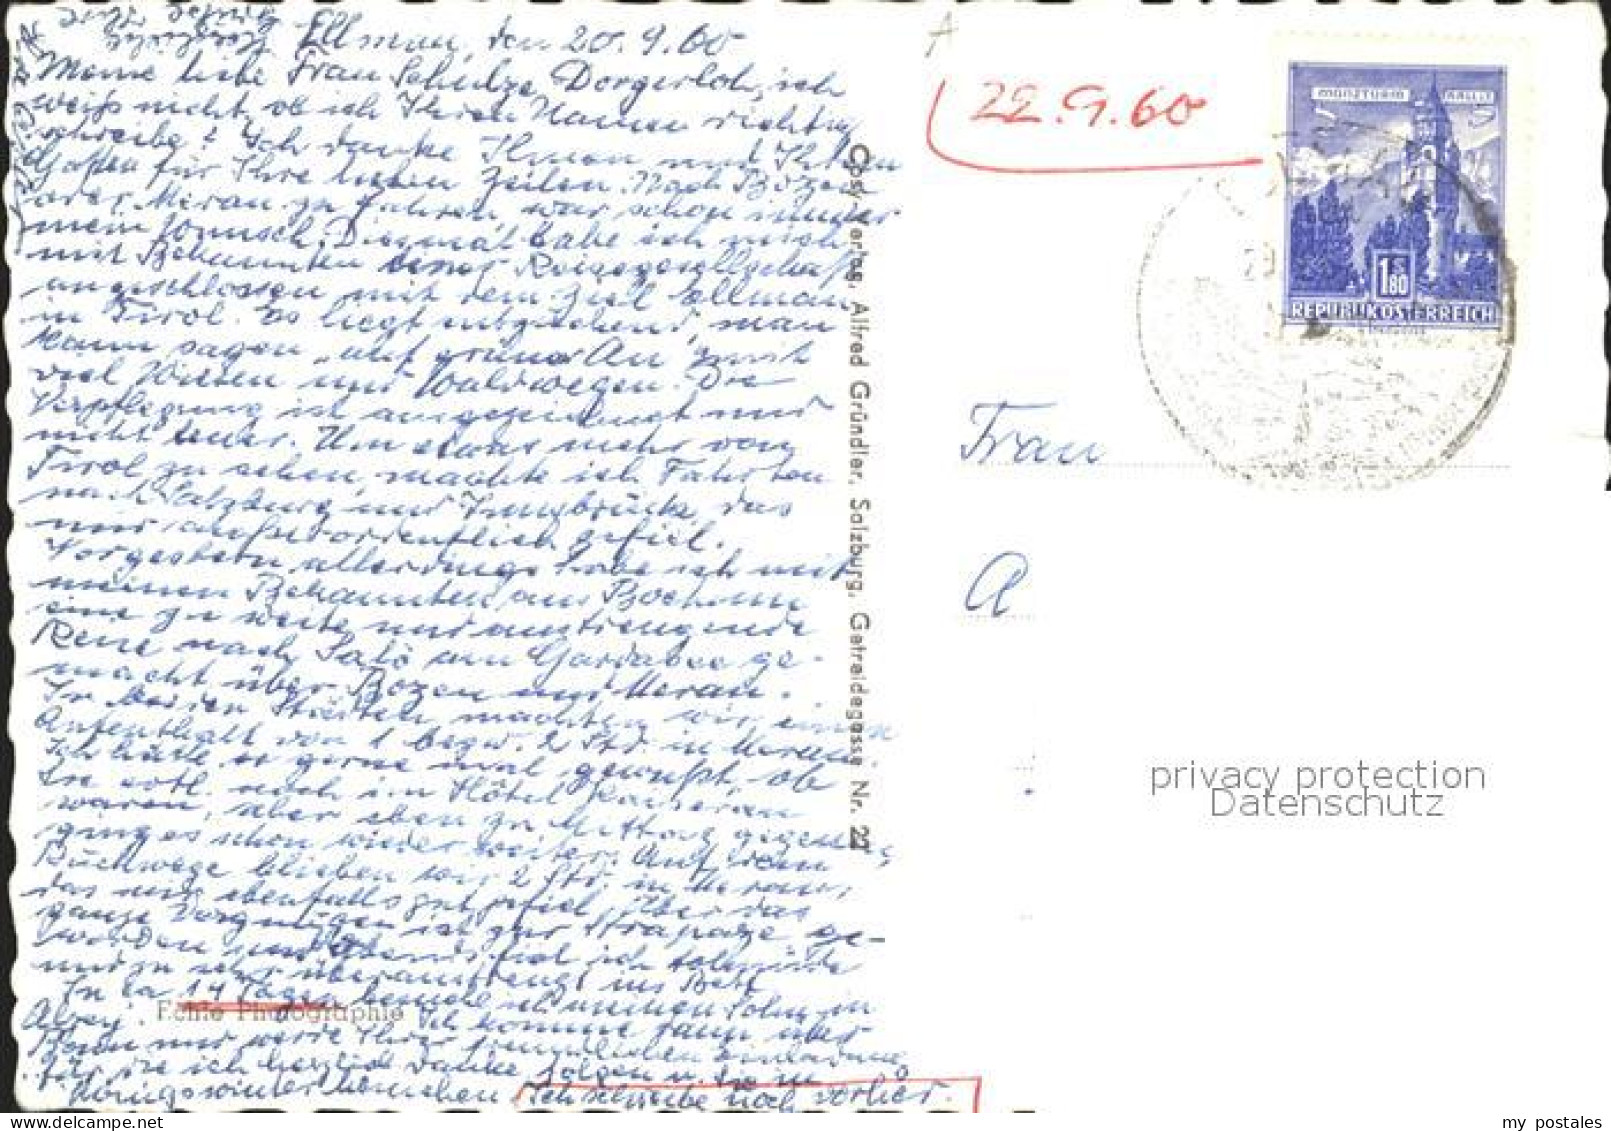 Ellmau, den 20. 9. 60
Meine liebe Frau Schulze Dorgerloh, ich
weiß nicht, ob ich Ihren Namen richtig
schreibe? Ich danke Ihnen und Ihrem
Gatten für Ihre lieben Zeilen. Nach Bozen
oder Meran zu fahren, war schon immer
mein Wunsch. Diesmal habe ich mich
mit Bekannten einer Reisegesellschaft
angeschlossen mit dem Ziel Ellmau
in Tirol. Es liegt entzückend, man
kann sagen, auf grüner Au, mit
viel Wiesen und Waldwegen. Die
Verpflegung ist ausgezeichnet und
nicht teuer. Um etwas mehr von
Tirol zu sehen, machte ich Fahrten
nach Salzburg und Innsbruck, das
mir außerordentlich gefiel.
Vorgestern allerdings habe ich mit
meinen Bekannten aus Bochum
eine zu weite und anstrengende
Reise nach Salò am Gardasee ge-
macht über Bozen und Meran.
In beiden Städten machten wir einen
Aufenthalt von 1 bezw. 2 Std. in Meran.
Ich hätte so gerne mal gewußt, ob
Sie evtl. noch im Hotel
waren, aber eben zu Mittag gegessen,
ging es schon wieder weiter. Auf dem
Rückwege blieben wir 2 Std. in Meran,
das mir ebenfalls gut gefiel. Aber das
ganze Vergnügen ist zur Strapaze ge-
worden und abends fiel ich todmüde
und zu sehr überanstrengt ins Bett
In ca 14 Tagen besuche ich meinen Sohn in
Alzey. Ich komme dann über
Bonn und werde Ihrer freundlichen Einladung,
für die ich herzlich danke folgen u. Sie in
Königswinter besuchen. Ich schreibe noch vorher.
Echte Photographie
Cosy-Verlag, Alfred Gründler, Salzburg, Getreidegasse Nr. 22
A
22.9.60
MÜNZTURM HALL I. T.
1 S 80
REPUBLIK ÖSTERREICH
Frau
A
privacy protection
Datenschutz
my postales